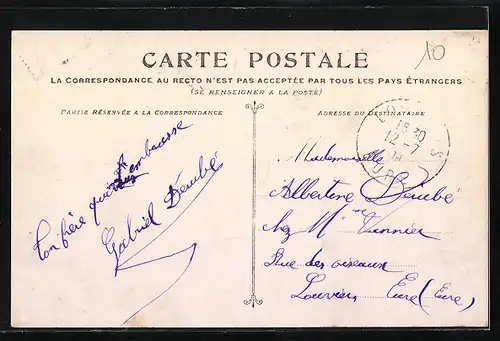 10
CARTE POSTALE
LA CORRESPONDANCE AU RECTO N'EST PAS ACCEPTÉE PAR TOUS LES PAYS ÉTRANGERS
(SE RENSEIGNER A LA POSTE)
PARTIE RÉSERVÉE A LA CORRESPONDANCE
ADRESSE DU DESTINATAIRE
Ton frère qui
t'embrasse
Gabriel Dembé
19 30
12 - 7
Mademoiselle
Albertine Dembé
chez Mme Vannier
Rue des oiseaux
Louviers Eure (Eure)